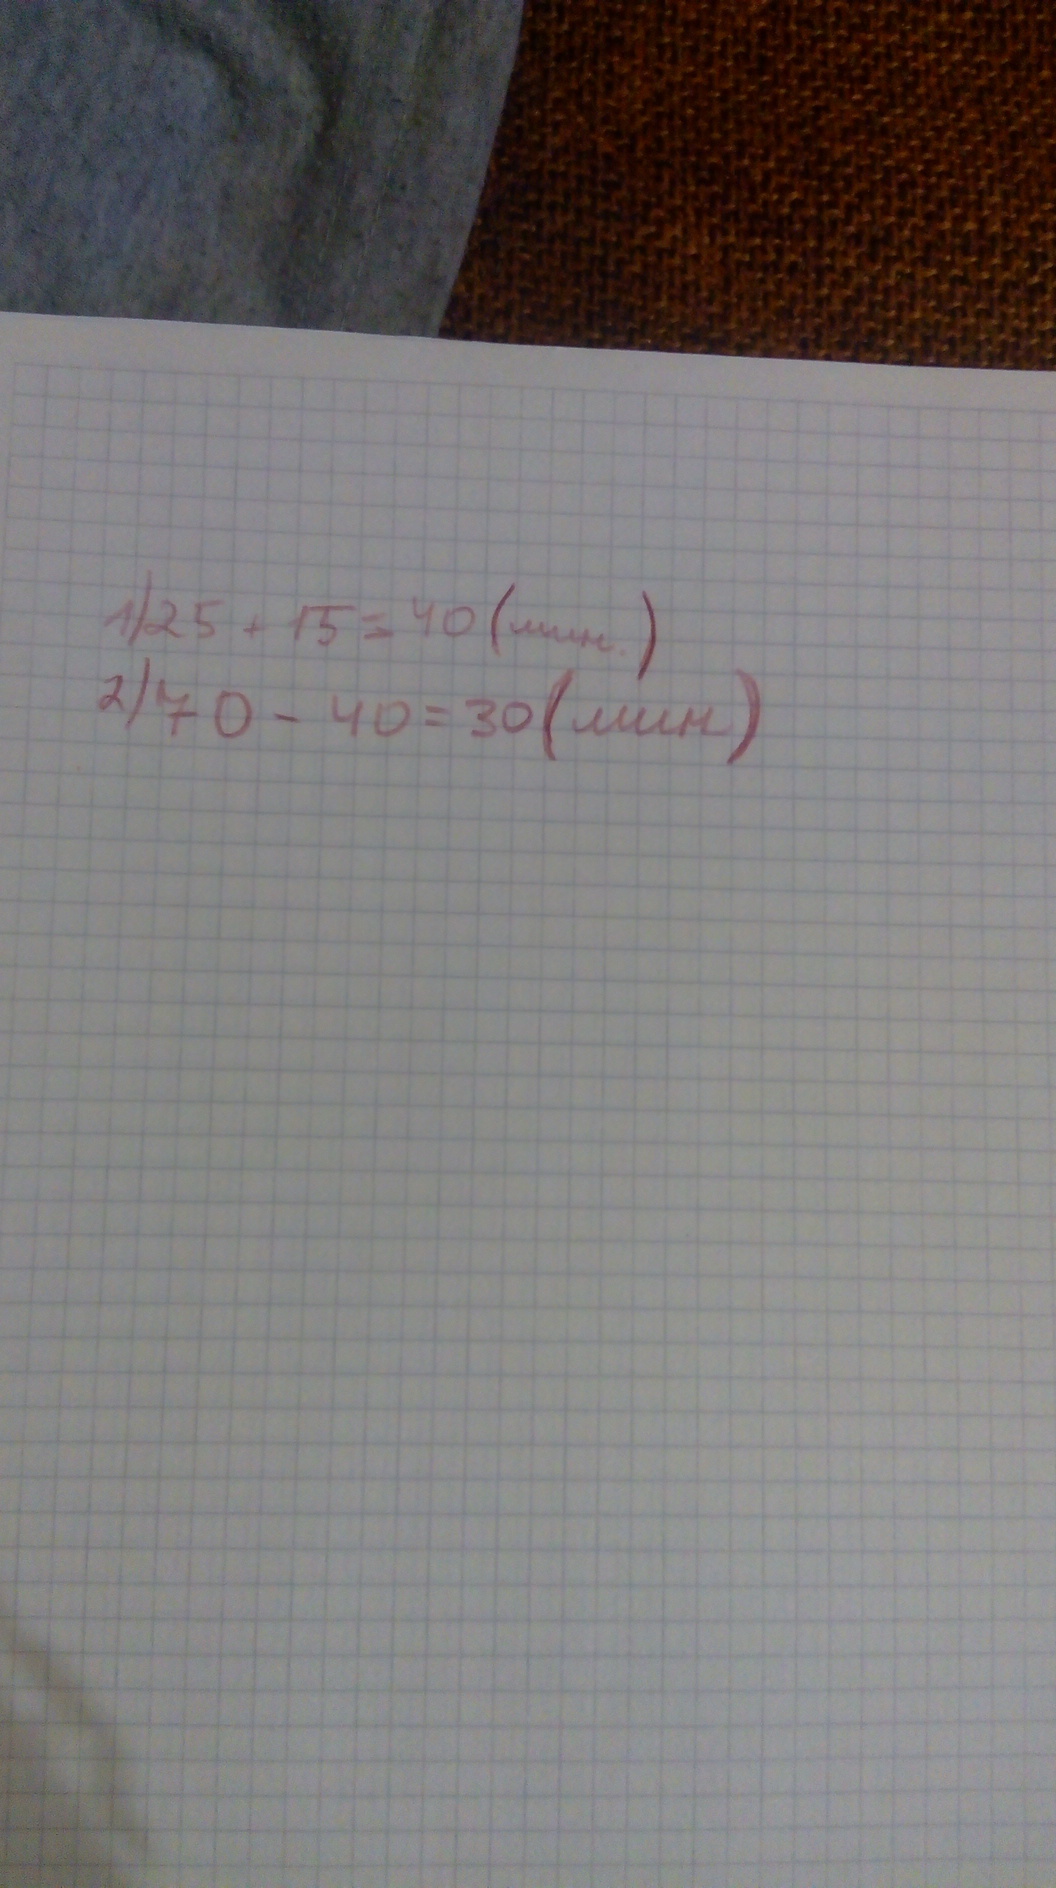 1) 25 + 15 = 40 (мин.)
2) 70 - 40 = 30 (мин)